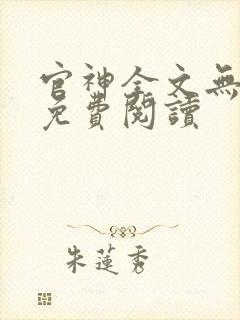 官神全文無
免費閱讀
朱蓮秀